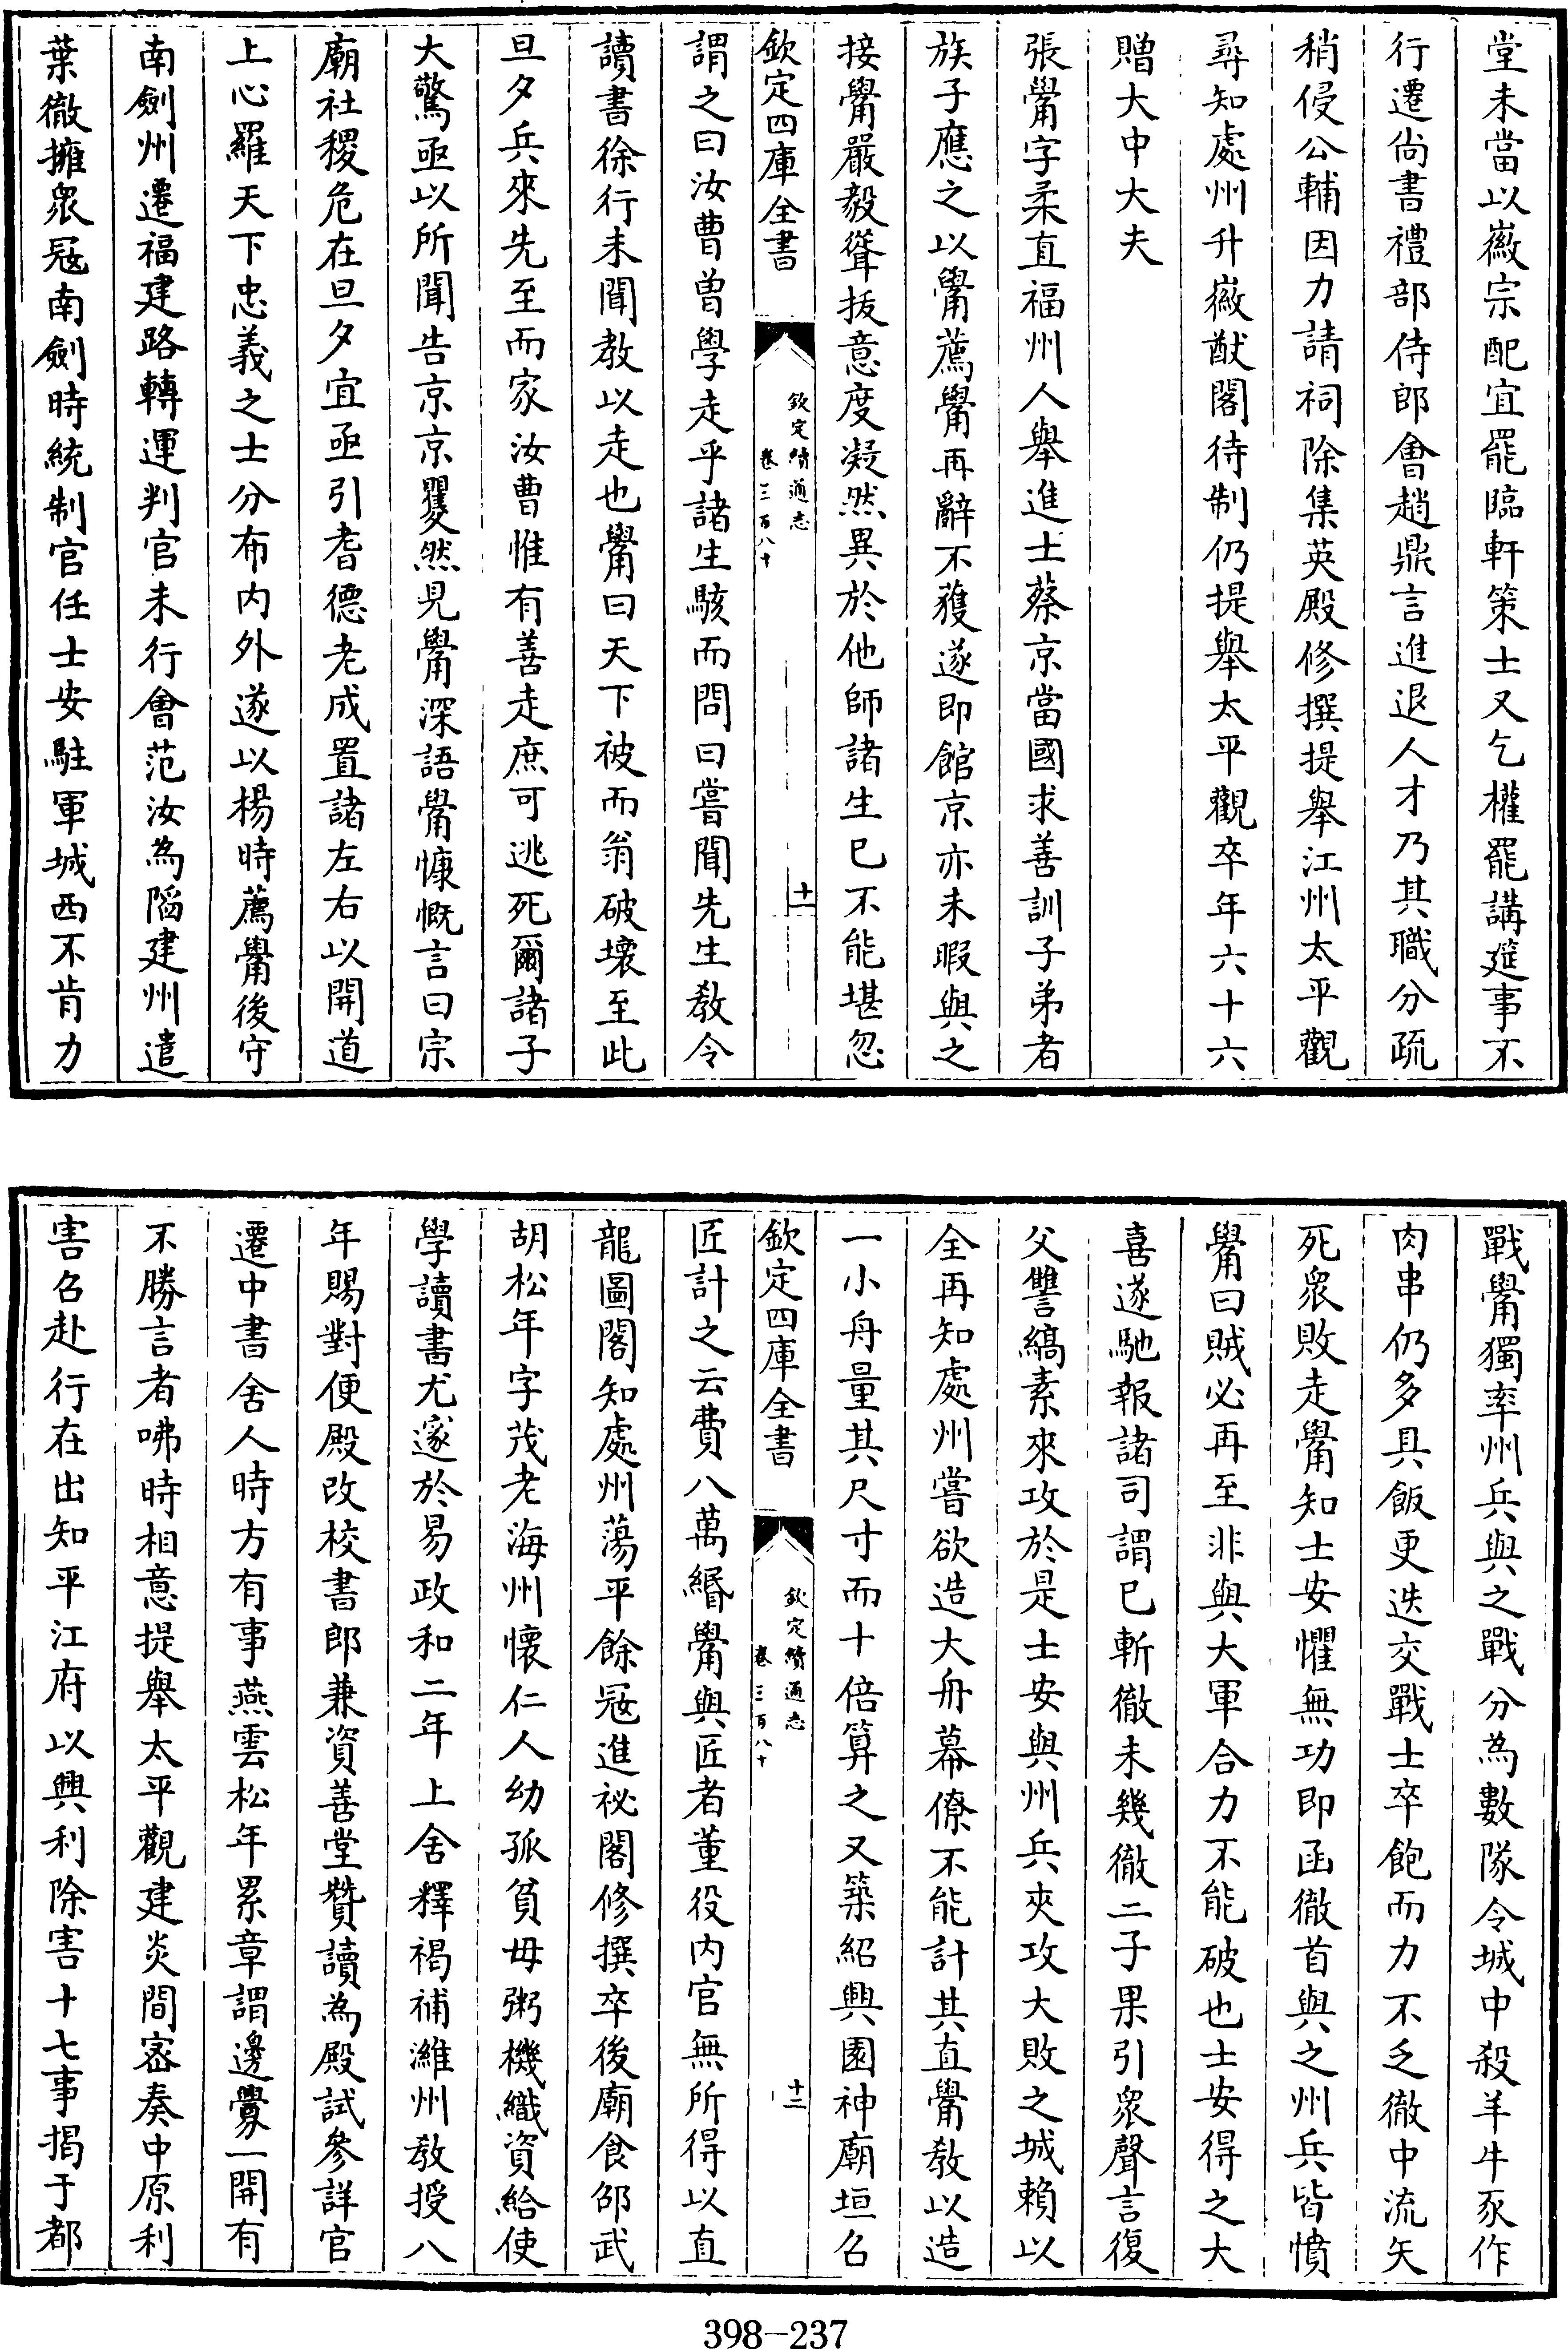 堂未當以徽宗配宜罷臨軒策士又乞權罷講筵事不
行遷尚書禮部侍郎會趙鼎言進退人才乃其職分疏
稍侵公輔因力請祠除集英殿修撰提舉江州太平觀
尋知處州升徽猷閣待制仍提舉太平觀卒年六十六
贈大中大夫
張觷字柔直福州人舉進士蔡京當國求善訓子弟者
族子應之以觷薦觷再辭不獲遂即館京亦未暇與之
接觷嚴毅聳拔意度凝然異於他師諸生已不能堪忽
欽定四庫全書
欽定續通志
卷三百八十
十一
謂之曰汝曹曾學走乎諸生駭而問曰嘗聞先生教令
讀書徐行未聞教以走也觷曰天下被而翁破壞至此
旦夕兵來先至而家汝曹惟有善走庶可逃死爾諸子
大驚亟以所聞告京京矍然見觷深語觷慷慨言曰宗
廟社稷危在旦夕宜亟引耆德老成置諸左右以開道
上心羅天下忠義之士分布內外遂以楊時薦觷後守
南劍州遷福建路轉運判官未行會范汝為陷建州遣
葉徹擁衆冦南劍時統制官任士安駐軍城西不肯力
戰觷獨率州兵與之戰分為數隊令城中殺羊牛豕作
肉串仍多具飯更迭交戰士卒飽而力不乏徹中流矢
死衆敗走觷知士安懼無功即函徹首與之州兵皆憤
觷曰賊必再至非與大軍合力不能破也士安得之大
喜遂馳報諸司謂已斬徹未幾徹二子果引衆聲言復
父讐縞素來攻於是士安與州兵夾攻大敗之城賴以
全再知處州嘗欲造大舟幕僚不能計其直觷教以造
一小舟量其尺寸而十倍算之又築紹興園神廟垣召
欽定四庫全書
欽定續通志
卷三百八十
十二
匠計之云費八萬緡觷與匠者董役內官無所得以直
龍圖閣知處州蕩平餘冦進祕閣修撰卒後廟食邵武
胡松年字茂老海州懷仁人幼孤貧母粥機織資給使
學讀書尤邃於易政和二年上舍釋褐補濰州教授八
年賜對便殿改校書郎兼資善堂贊讀為殿試參詳官
遷中書舍人時方有事燕雲松年累章謂邊釁一開有
不勝言者咈時相意提舉太平觀建炎間密奏中原利
害召赴行在出知平江府以興利除害十七事揭于都
398-237